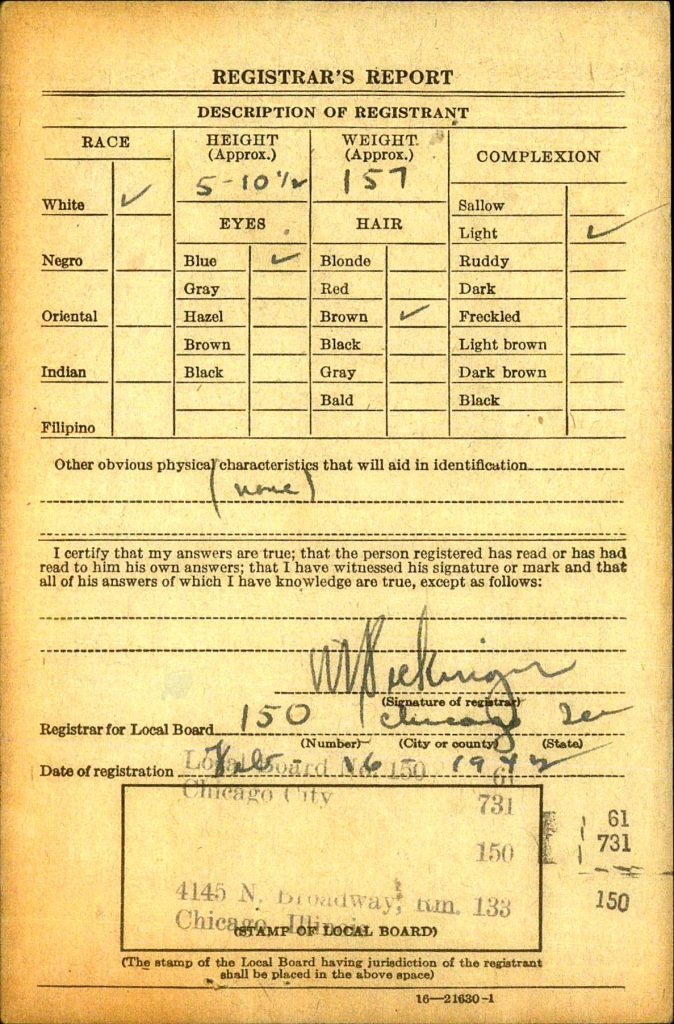 REGISTRAR'S REPORT
DESCRIPTION OF REGISTRANT
RACE
HEIGHT
(Approx.)
WEIGHT
(Approx.)
COMPLEXION
5-10½
157
White ✓
EYES
HAIR
Sallow
Light ✓
Negro
Blue ✓
Blonde
Ruddy
Gray
Red
Dark
Oriental
Hazel
Brown ✓
Freckled
Brown
Black
Light brown
Indian
Black
Gray
Dark brown
Bald
Black
Filipino
Other obvious physical characteristics that will aid in identification
(none)
I certify that my answers are true; that the person registered has read or has had
read to him his own answers; that I have witnessed his signature or mark and that
all of his answers of which I have knowledge are true, except as follows:
(Signature of registrar)
Registrar for Local Board 150 Chicago
(Number) (City or county) (State)
Date of registration Feb- 16- 1942
Local Board No. 150 61
Chicago City 731
61
731
150
150
4145 N. Broadway, Rm. 133
Chicago, Illinois
(STAMP OF LOCAL BOARD)
(The stamp of the Local Board having jurisdiction of the registrant
shall be placed in the above space)
16—21630-1